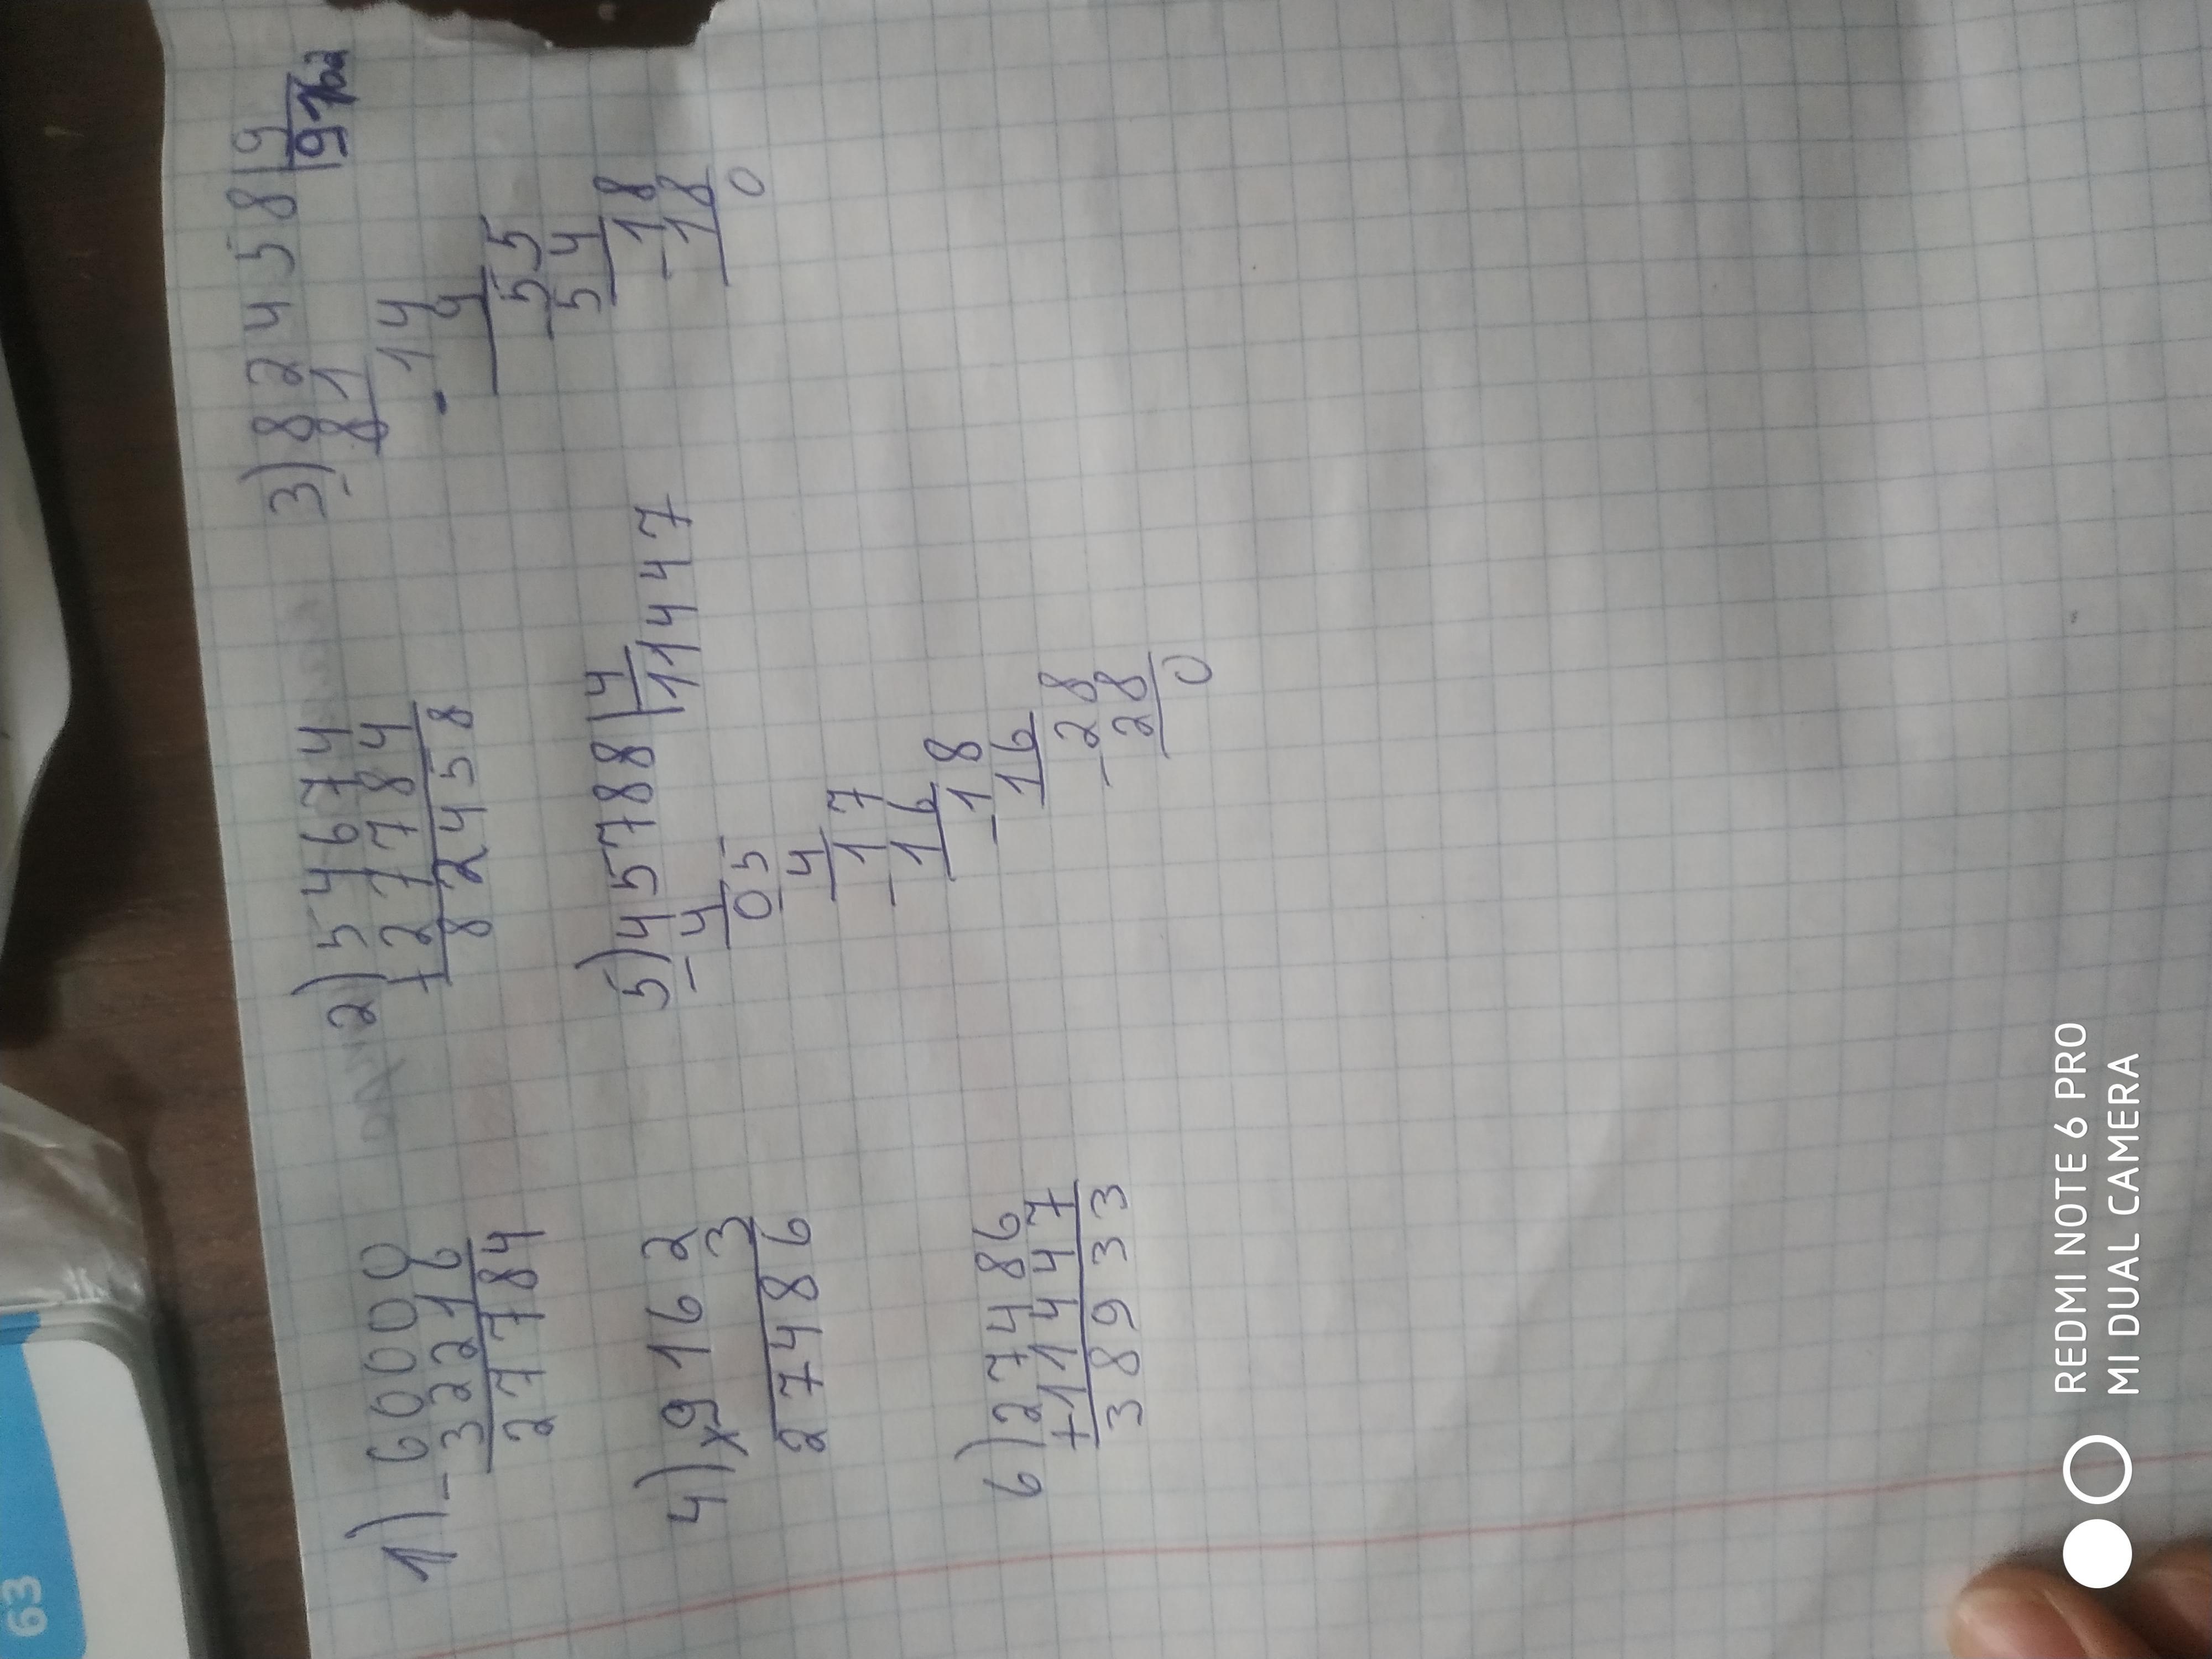 1) 60000
- 32216
27784
2) 54674
+ 27784
82458
3) 82458 | 9
- 81 | 9162
- 14
9
- 55
54
- 18
18
0
4) × 9162
3
27486
5) 45788 | 4
- 4 | 11447
05
- 4
- 17
16
- 18
16
- 28
28
0
6) 27486
+ 11447
38933
63
REDMI NOTE 6 PRO
MI DUAL CAMERA